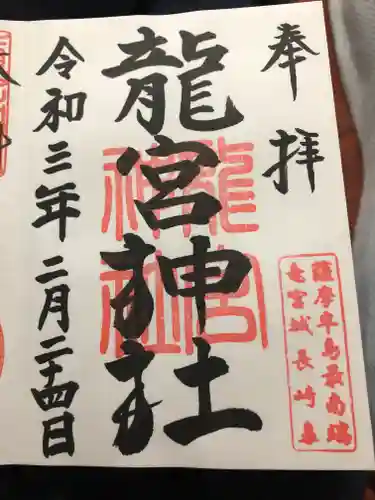 奉拝
薩摩半島最南端
竜宮城長崎鼻
龍宮神社
龍宮神社
令和三年二月二十四日